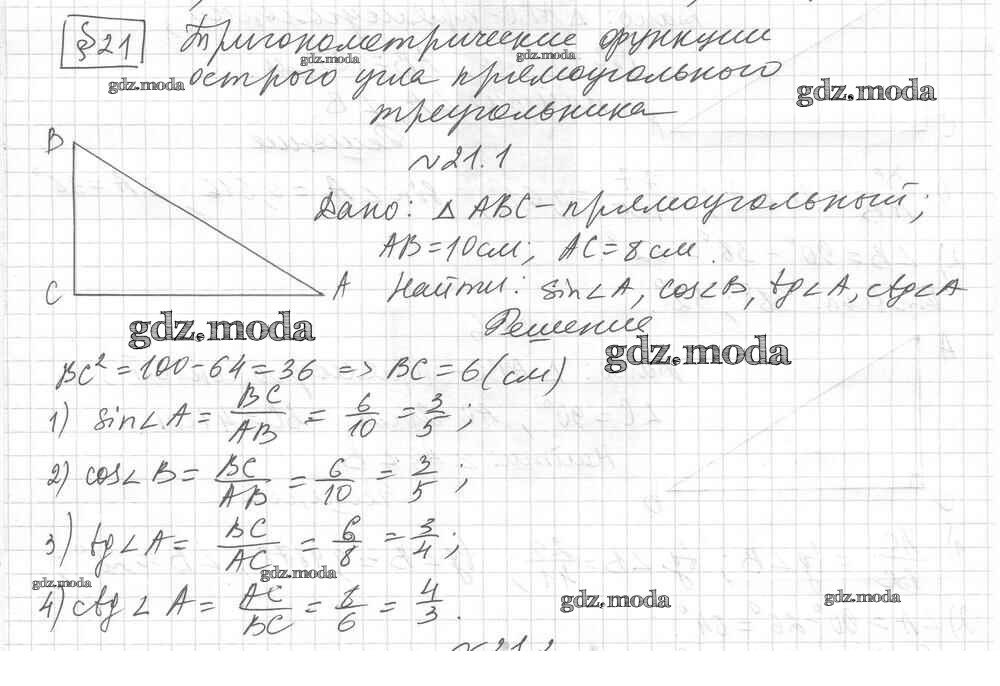 §21 Тригонометрические функции
острого угла прямоугольного
треугольника
gdz.moda
gdz.moda
gdz.moda
gdz.moda
№21.1
B
Дано: △ ABC – прямоугольный;
AB = 10 см; AC = 8 см.
C
A
Найти: sin∠A, cos∠B, tg∠A, ctg∠A
gdz.moda
Решение
gdz.moda
BC² = 100 - 64 = 36 => BC = 6 (см)
1) sin∠A = BC/AB = 6/10 = 3/5;
2) cos∠B = BC/AB = 6/10 = 3/5;
3) tg∠A = BC/AC = 6/8 = 3/4;
gdz.moda
gdz.moda
4) ctg∠A = AC/BC = 8/6 = 4/3.
gdz.moda
gdz.moda